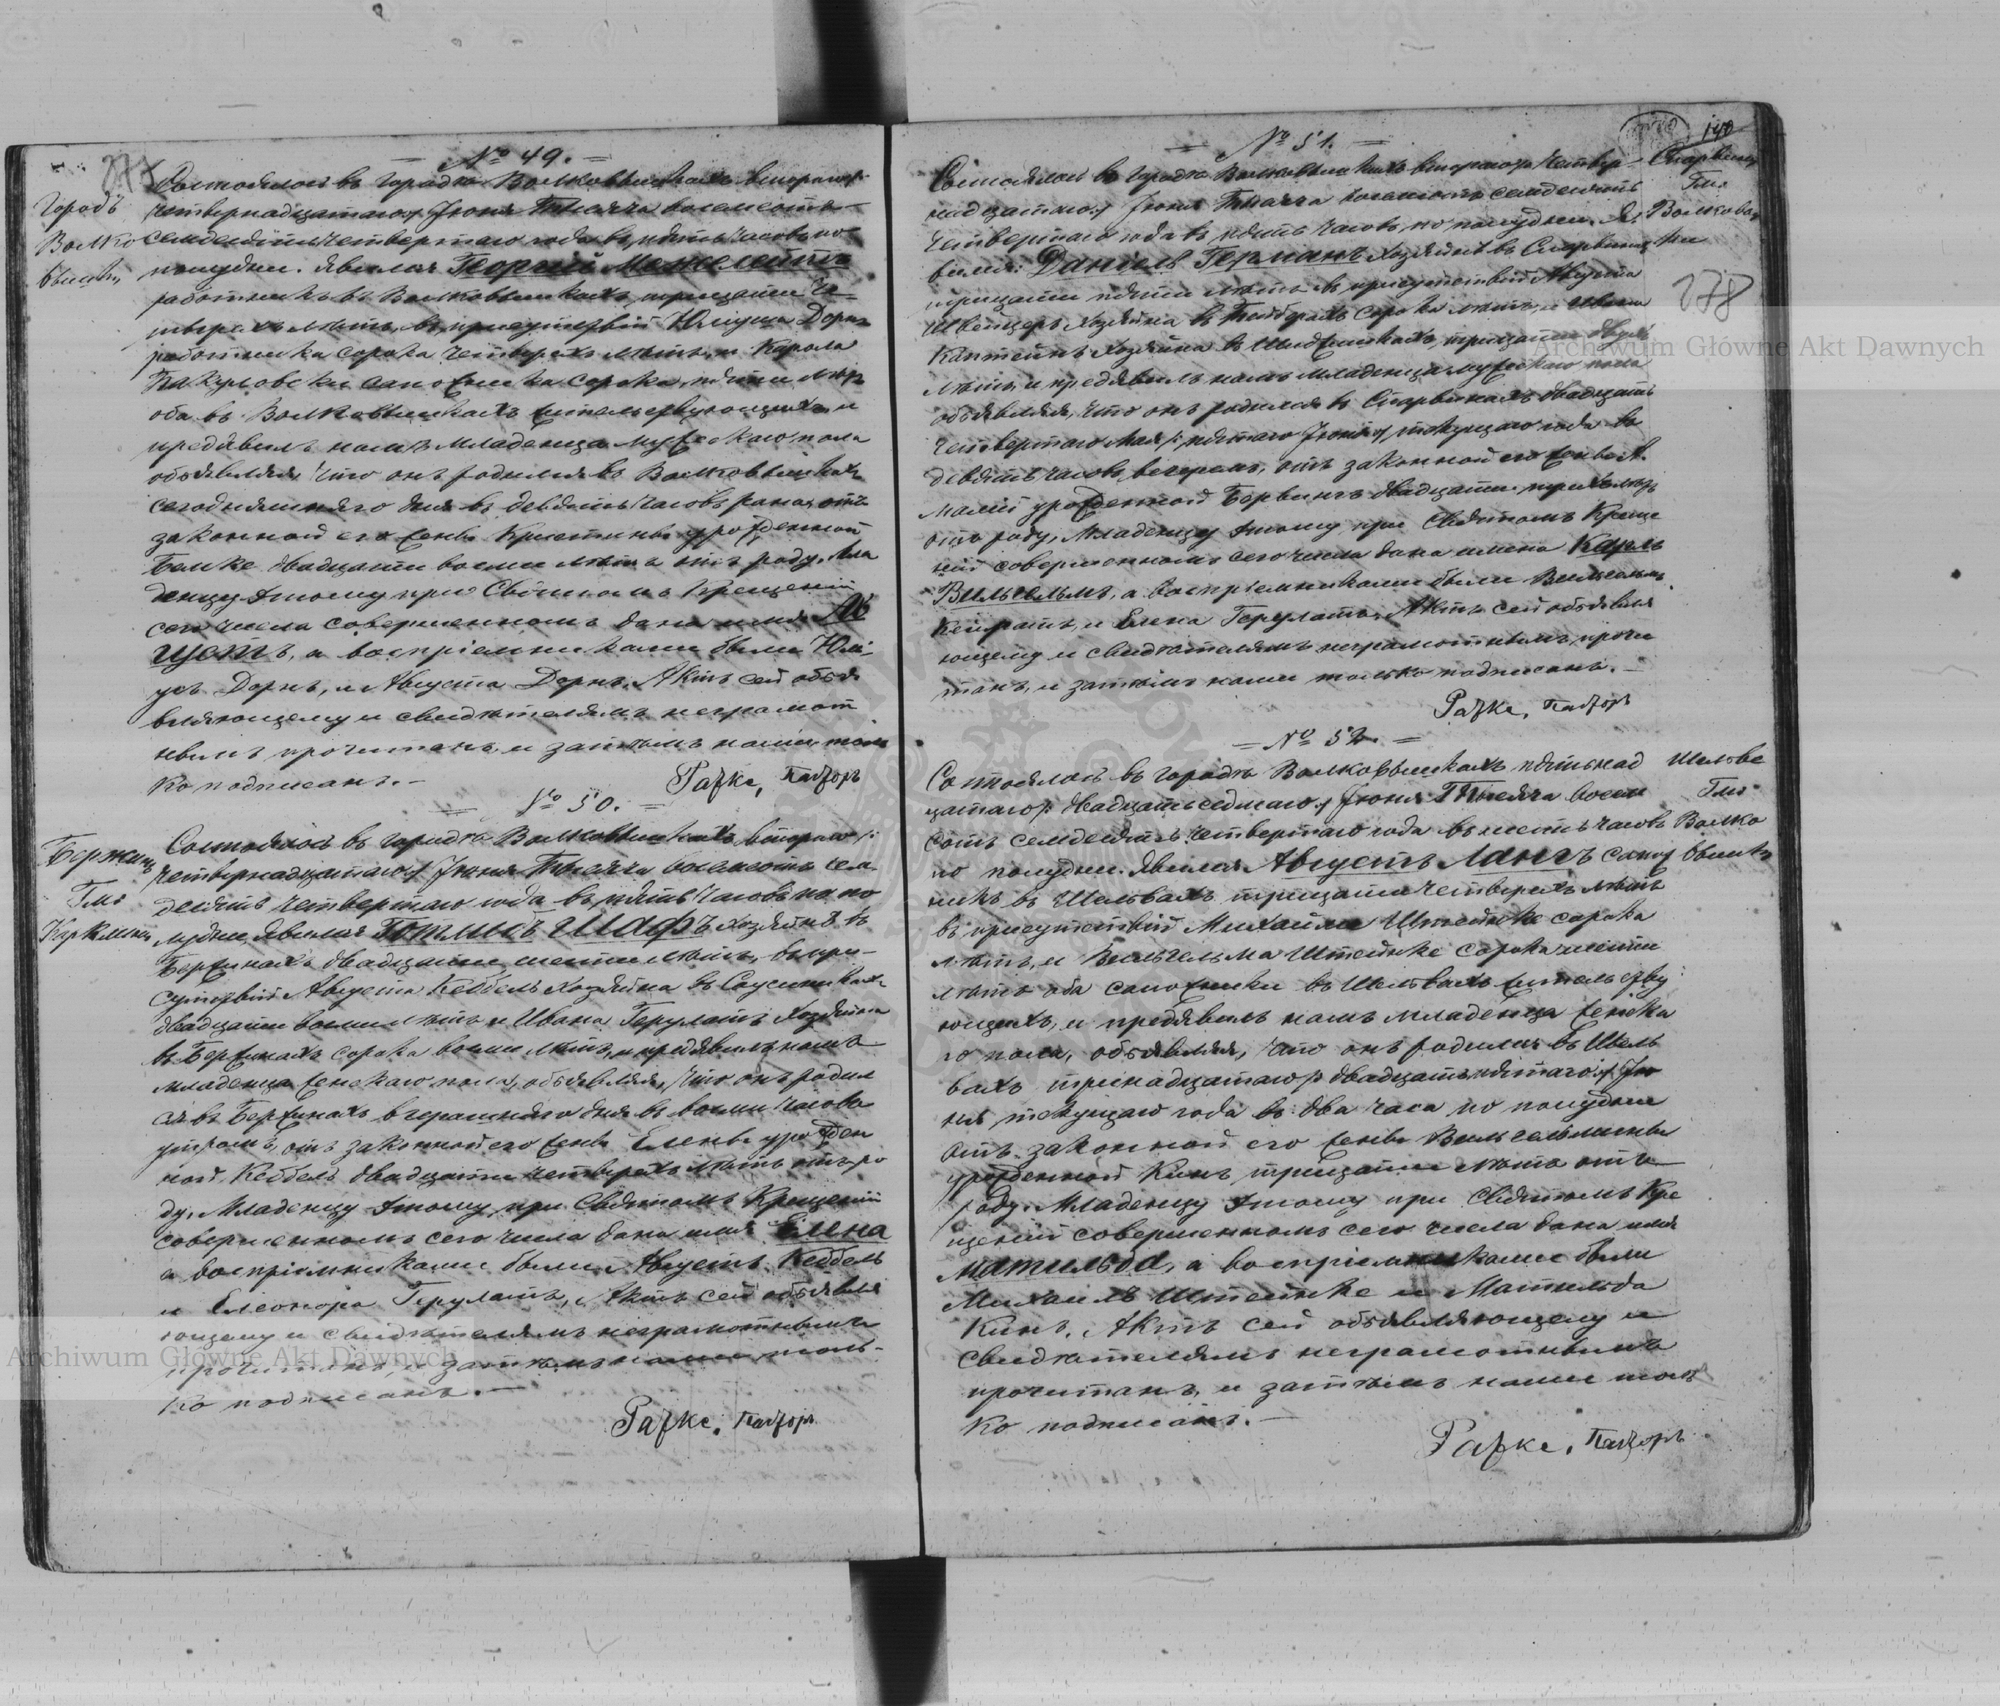 277
№ 49.
Городъ
Волко
вишки
Состоялось въ городѣ Волковышкахъ втораго/:
четырнадцатаго/ Іюня Тысяча восемсотъ
семдесятъ четвертаго года въ пять часовъ по
полудни. Явился Георгій
работникъ въ Волковышкахъ тридцати че-
тырехъ лѣтъ, въ присутствіи Юліуса Дорнъ
работника сорока четырехъ лѣтъ, и Карола
сапожника сорока пяти лѣтъ
оба въ Волковышкахъ жительствующихъ, и
предъявилъ намъ младенца мужескаго пола
объявляя, что онъ родился въ Волковышкахъ
сегодняшняго дня въ девять часовъ рана, отъ
законной его жены Кристины урожденной
двадцати восьми лѣтъ отъ роду. Мла
денцу этому при Святомъ Крещеніи
сего числа совершенномъ дано имя Ав
густъ, а воспріемниками были Юлі
усъ Дорнъ, и Августа Дорнъ. Актъ сей объя
вляющему и свидѣтелямъ неграмот
нымъ прочитанъ, и затѣмъ нами толь
ко подписанъ. —
Рафке, Пасторъ
№ 50.
Бержины
Гми
Состоялось въ городѣ Волковышкахъ втораго/:
четырнадцатаго/ Іюня Тысяча восемсотъ сем
десятъ четвертаго года въ пять часовъ по по
лудни, явился Готлибъ Шафъ хозяинъ въ
Бержинахъ двадцати шести лѣтъ, въ при-
сутствіи Августа Кеббель хозяина въ
двадцати восьми лѣтъ и Ивана Герулатъ хозяина
въ Бержинахъ сорока восьми лѣтъ, и предъявилъ намъ
младенца женскаго пола, объявляя, что онъ родил
ся въ Бержинахъ вчерашняго дня въ восьми часовъ
утромъ, отъ законной его жены Елены урожден
ной Кеббель двадцати четырехъ лѣтъ отъ ро
ду. Младенцу этому, при Святомъ Крещеніи
совершенномъ сего числа дано имя Елена
а воспріемниками были Августъ Кеббель
и Елеонора Герулатъ, Актъ сей объявля
ющему и свидѣтелямъ неграмотнымъ
прочитанъ, и затѣмъ нами толь-
ко подписанъ. —
Рафке, Пасторъ
140
№ 51.
Гми
278
Состоялось въ городѣ Волковышкахъ втораго/: четыр
надцатаго/ Іюня Тысяча восемсотъ семдесятъ
четвертаго года въ пять часовъ по полудни. Я
вился Даніель Германъ хозяинъ въ
тридцати пяти лѣтъ въ присутствіи Августа
Швейцеръ хозяина въ сорока лѣтъ, и Ивана
хозяина въ тридцати двухъ
лѣтъ, и предъявилъ намъ младенца мужескаго пола
объявляя, что онъ родился въ двадцать
четвертаго Мая/: пятаго Іюня/ текущаго года въ
девять часовъ вечеромъ, отъ законной его жены
урожденной двадцати трехъ лѣтъ
отъ роду, Младенцу этому при Святомъ Креще
ніи совершенномъ сего числа дано имена Карлъ
Вильгельмъ, а воспріемниками были Вильгельмъ
и Елена Герулатъ. Актъ сей объявля
ющему и свидѣтелямъ неграмотнымъ, прочи
танъ, и затѣмъ нами только подписанъ. —
Рафке, Пасторъ
№ 52.
Шельве
Гми
Волко
вышки
Состоялось въ городѣ Волковышкахъ пятьнад
цатаго/: двадцать седмаго/ Іюня Тысяча восем
сотъ семдесятъ четвертаго года въ шесть часовъ
по полудни. Явился Августъ Лангъ сапож
никъ въ Шельвахъ тридцати четырехъ лѣтъ
въ присутствіи Михаила Штейнке сорока
лѣтъ, и Вильгельма Штейнке сорока шести
лѣтъ оба сапожники въ Шельвахъ жительству
ющихъ, и предъявилъ намъ младенца женска
го пола, объявляя, что онъ родился въ Шель
вахъ тринадцатаго/: двадцать пятаго/ Ію
ня, текущаго года въ два часа по полудни
отъ законной его жены Вильгельмины
урожденной Кинъ тридцати лѣтъ отъ
роду. Младенцу этому при Святомъ Кре
щеніи совершенномъ сего числа дано имя
Матильда, а воспріемниками были
Михаилъ Штейнке и Матильда
Кинъ. Актъ сей объявляющему и
свидѣтелямъ неграмотнымъ
прочитанъ, и затѣмъ нами толь
ко подписанъ. —
Рафке, Пасторъ
Archiwum Główne Akt Dawnych
Archiwum Główne Akt Dawnych